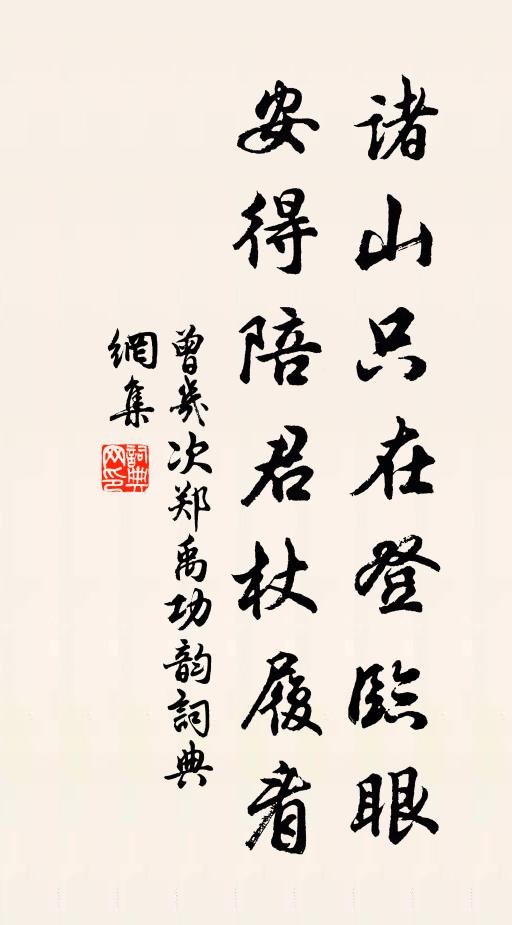 诸山只在登临眼
安得陪君杖履看
曾几次郑禹功韵詞典
網集
詞典
网印